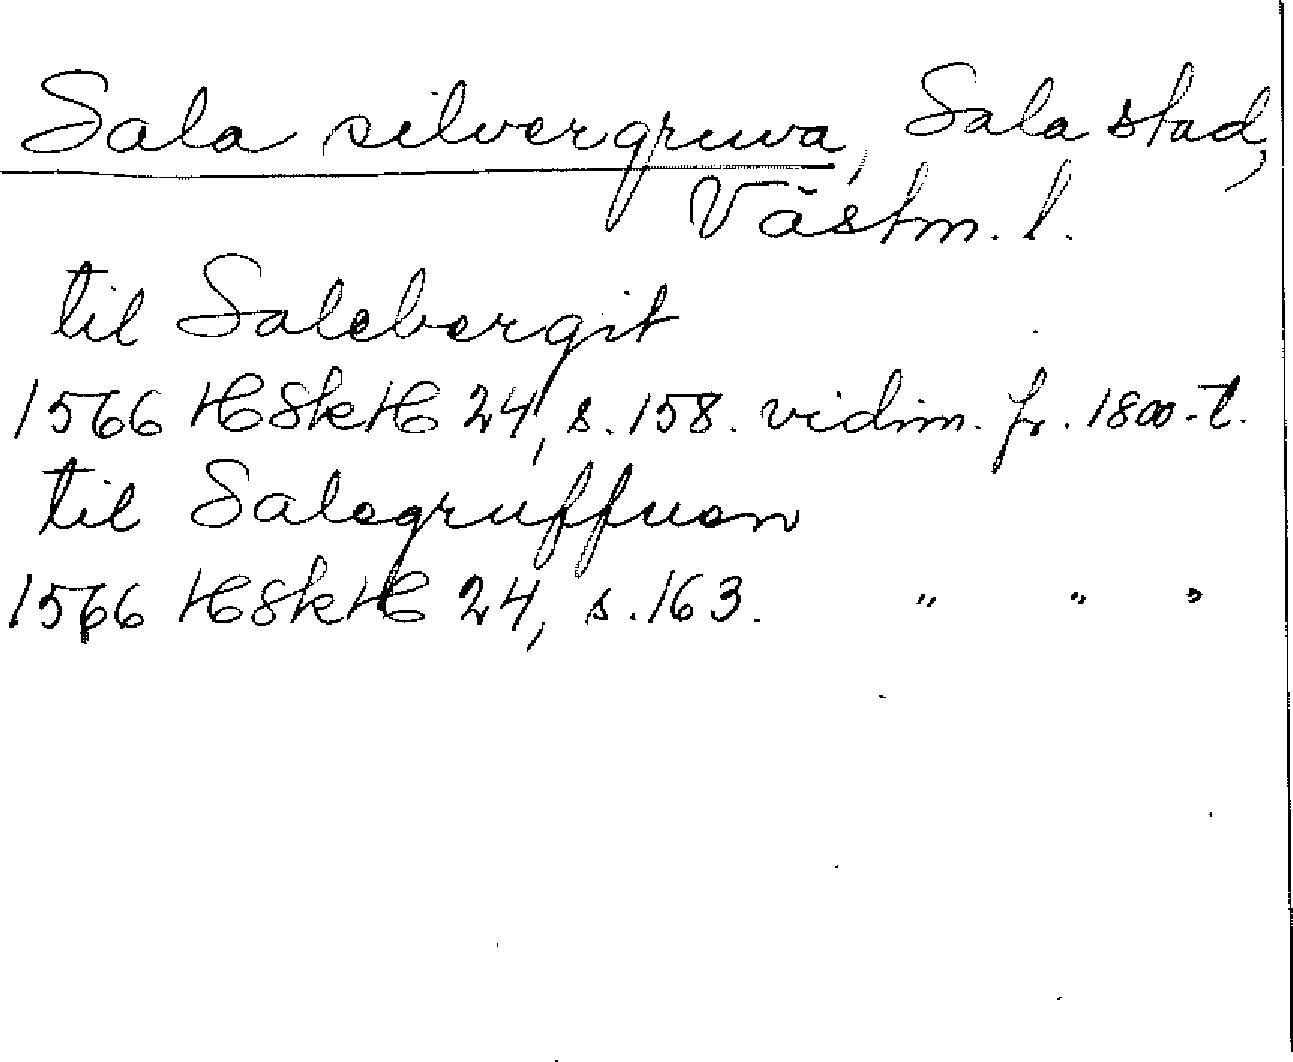 Sala silvergruva, Sala stad,
Västm. l.
til Salebergit
1566 HSkH 24, s. 158. vidim. fr. 1800-t.
til Salegruffuen
1566 HSkH 24, s. 163. " " "